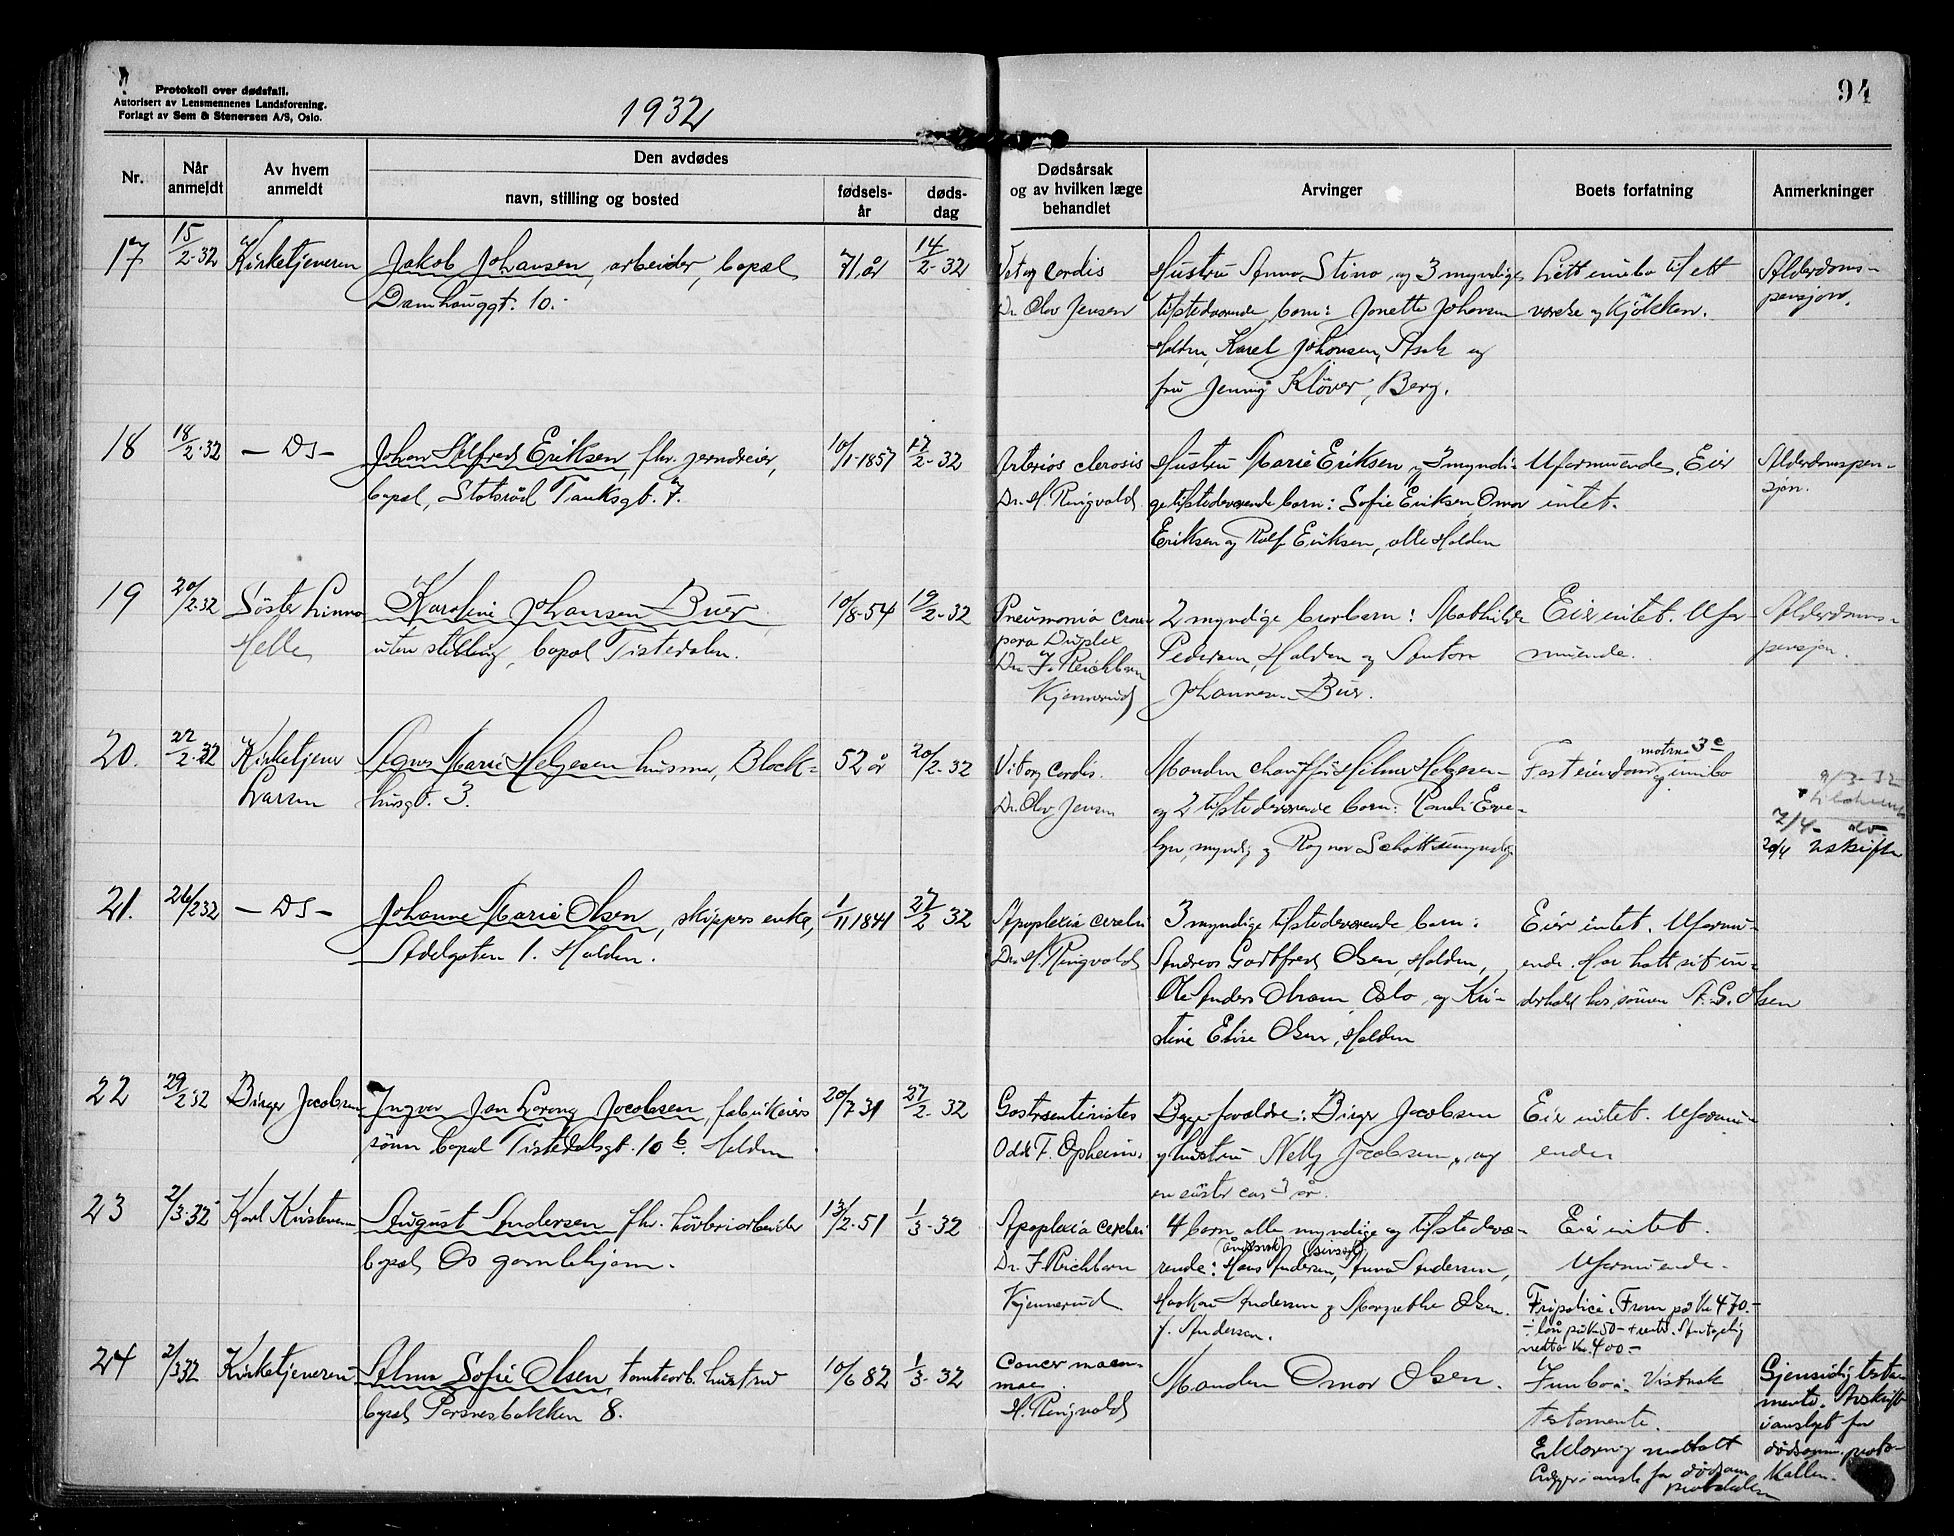 Protokoll over dødsfall.
Autorisert av Lensmennenes Landsforening.
Forlagt av Sem & Stenersen A/S, Oslo.
1932
94
Nr.
Når anmeldt
Av hvem anmeldt
Den avdødes
navn, stilling og bosted
fødsels-år
døds-dag
Dødsårsak og av hvilken læge behandlet
Arvinger
Boets forfatning
Anmerkninger
17
15/2-32
Kirketjeneren
Jakob Johansen, arbeider, bopæl
Damhauggt. 10.
71 år
14/2-32
Vit og Cordis
Dr. Olav Jensen
Hustru Anna Stina, og 3 myndige
tilstedværende barn: Jonette Johansen
Halden, Karel Johansen, Asak og
fru Jenny Kløver, Berg.
Lett innbo til ett
værelse og kjøkken.
Alderdoms-
pensjon.
18
18/2-32
- DS -
Johan Alfred Eriksen, fhv. jerndreier,
bopæl, Stolsrød Tanksgt. 7.
10/1-1857
17/2-32
Arterios clerosis
Dr. H. Ringvold
Hustru Marie Eriksen og 3 myndi-
ge tilstedeværende barn: Sofie Eriksen, Omar
Eriksen og Rolf Eriksen, alle Halden
Uformuende. Eier
intet.
Alderdomspen-
sjon.
19
20/2-32
Søster Linna
Helle
Karoline Johansen Buer,
uten stilling, bopæl Tistedalen.
10/8-54
19/2-32
Pneumonia crou
posa Duplex
Dr. J. Reichborn
Kjennerud
2 myndige barnbarn: Mathilde
Pedersen, Halden og Anton
Johannesen Buer.
Eier intet. Ufor-
muende.
Alderdoms-
pensjon.
20.
22/2-32
Kirketjener
Larsen
Agnes Marie Helgesen husmor, Block-
husgt. 3.
52 år
20/2-32
Vit og Cordis.
Dr. Olav Jensen
Manden chauffør Hilmar Helgesen
og 2 tilstedeværende barn: Randi Eve-
lyn, myndig og Ragnar Schøtt umyndig
Fast eiendom og innbo
matr. 3c
9/3-32
7/4- do
20/4 uskifte
21.
26/2 32
- DS -
Johanne Marie Olsen, skippers enke,
Adelgaten 1. Halden.
1/11 1841
27/2 32
Apoplexia cerebri
Dr. H. Ringvold
3 myndige tilstedeværende barn:
Andreas Gottfred Olsen, Halden,
Ole Anders Ohram, Oslo, og Kri-
stine Elise Olsen, Halden
Eier intet. Uformu-
ende. Har hatt sit un-
derhold hos sønnen A. G. Olsen
22
29/2 32
Birger Jacobsen
Ingvar Jan Lorang Jacobsen, fabrikeiers
sønn bopæl Tistedalsgt. 10 b. Halden
20/7 31
27/2-32
Gastroenterites
Odd F. Opheim.
Begge foreldre: Birger Jacobsen
og hustru Nelly Jacobsen, og
en søster ca. 3 år.
Eier intet. Uformu-
ende
23
2/3-32
Karl Kristensen
August Andersen fhv. høvleriarbeider
bopæl Os gamlehjem.
13/2-51
1/3-32
Apoplexia cerebri
Dr. J. Reichborn
Kjennerud
4 barn alle myndige og tilstedevæ-
rende: Hans Andersen, Anna Andersen,
Haakon Andersen og Margrethe Olsen
f. Andersen.
Eier intet.
Uformuende.
Fripolice i Fram på Kr 470.-
÷ lån på Kr 50- + rente. Antagelig
netto Kr. 400-
24
2/3 32
Kirketjeneren
Alma Sofie Olsen, tomtearb. hustru
bopæl Porsnesbakken 8.
10/6 82
1/3-32
Cancer mam-
mae.
H. Ringvold
Manden Omar Olsen.
Innbo.
testamente.
Erklæring mottatt
Gjensidig testa-
mente. Avskrift
i omslaget for
dødsanm. proto-
kollen.